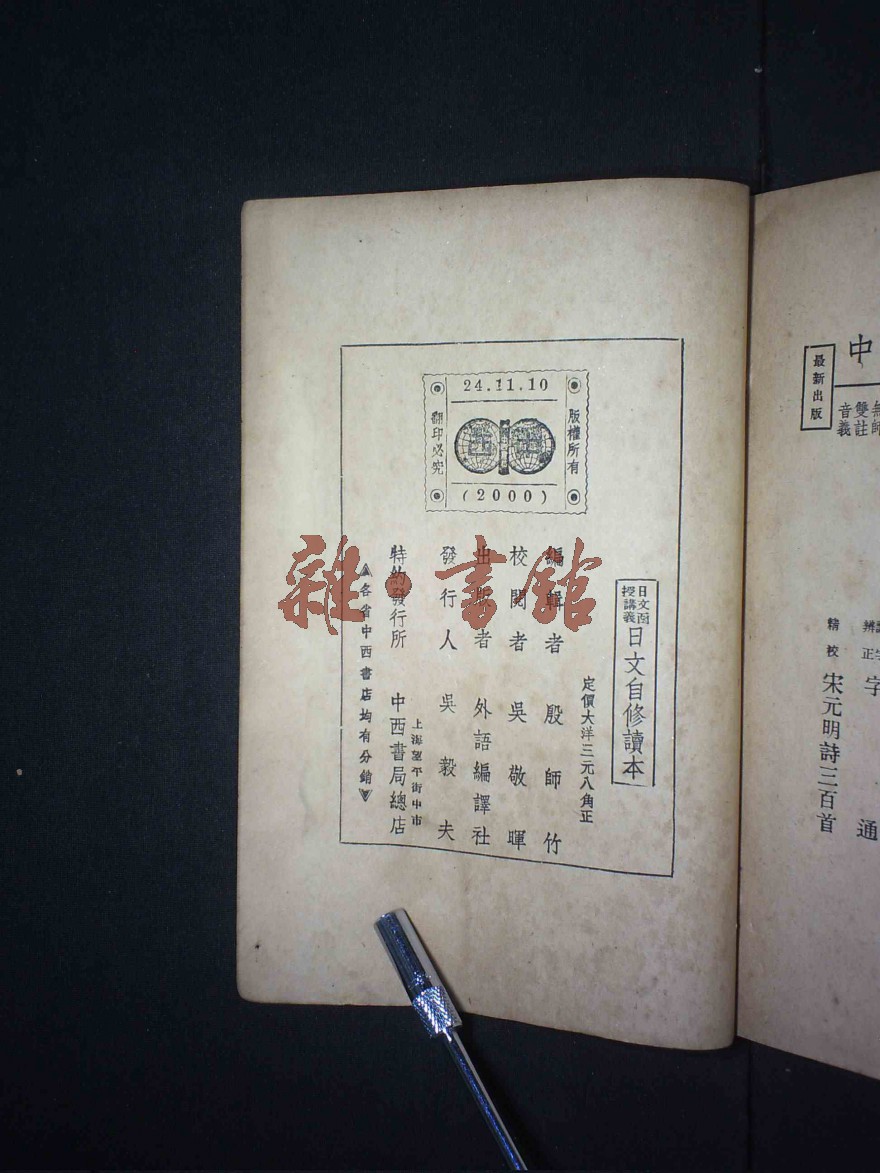 24.11.10
版權所有
翻印必究
(2000)
日文函授講義
日文自修讀本
定價大洋三元八角正
編輯者 殷師竹
校閱者 吳敬暉
出版者 外語編譯社
發行人 吳毅夫
上海望平街中市
特約發行所 中西書局總店
▲各省中西書店均有分銷▼
雜·書館
中
最新出版
雙註
音義
辨正
字通
精校 宋元明詩三百首